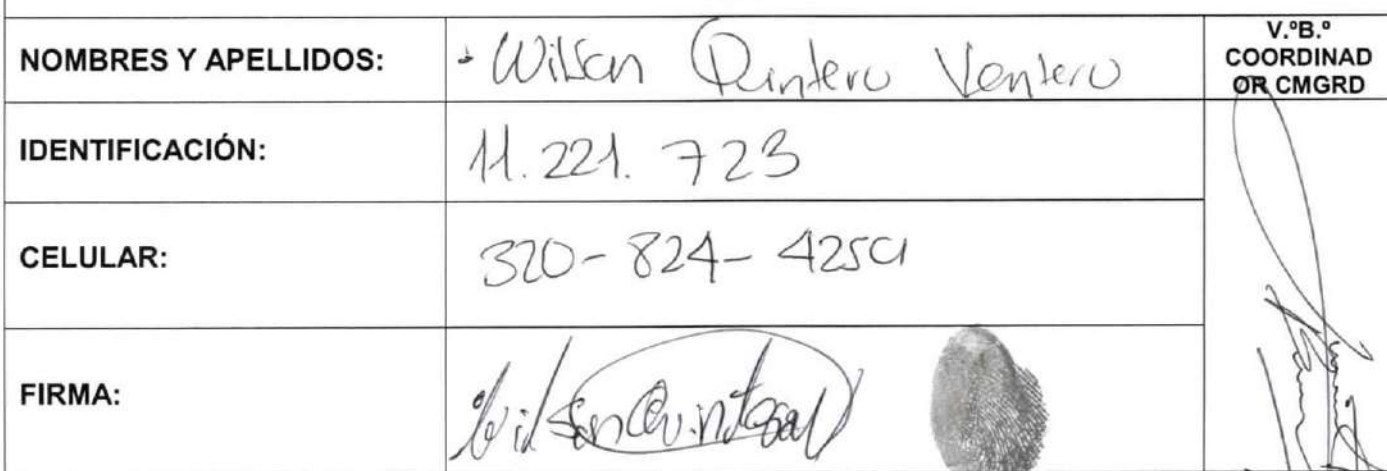 NOMBRES Y APELLIDOS: Wilson Quintero Ventero
V.ºB.º
COORDINAD
OR CMGRD
IDENTIFICACIÓN: 11.221.723
CELULAR: 320-824-4259
FIRMA: Wilson Quintero V